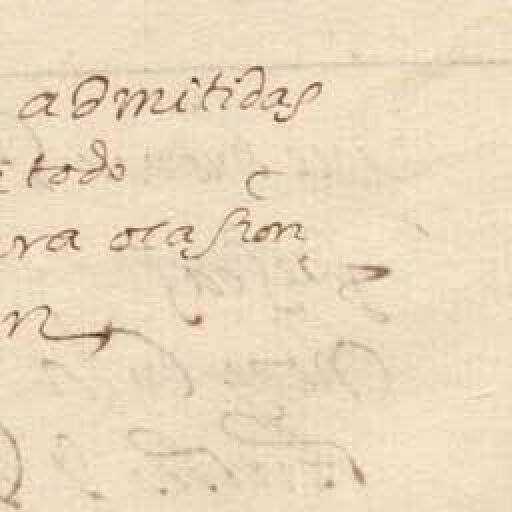 admitidas
todo
ra ocasion
n